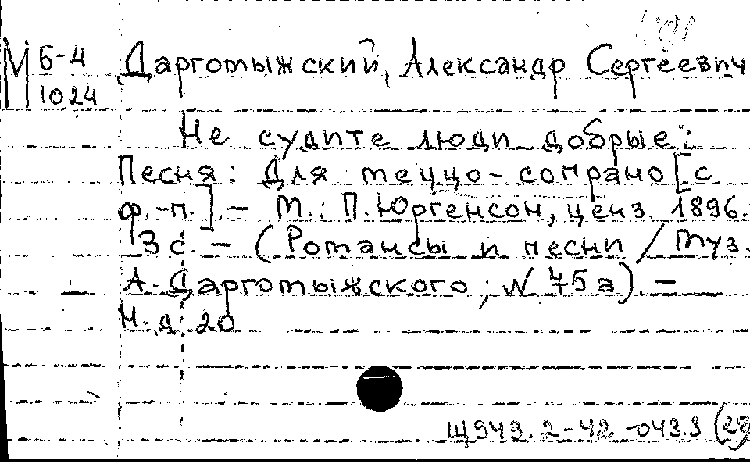 М Б-4 Даргомыжский, Александр Сергеевич
1024
Не судите люди добрые:
Песня: Для меццо-сопрано [с
ф.-п.]. - М.: П. Юргенсон, ценз. 1896.
3 с. - (Романсы и песни / Муз.
А. Даргомыжского; N 75а) -
Н.д. 20
Щ949.2-42-043.3 (29